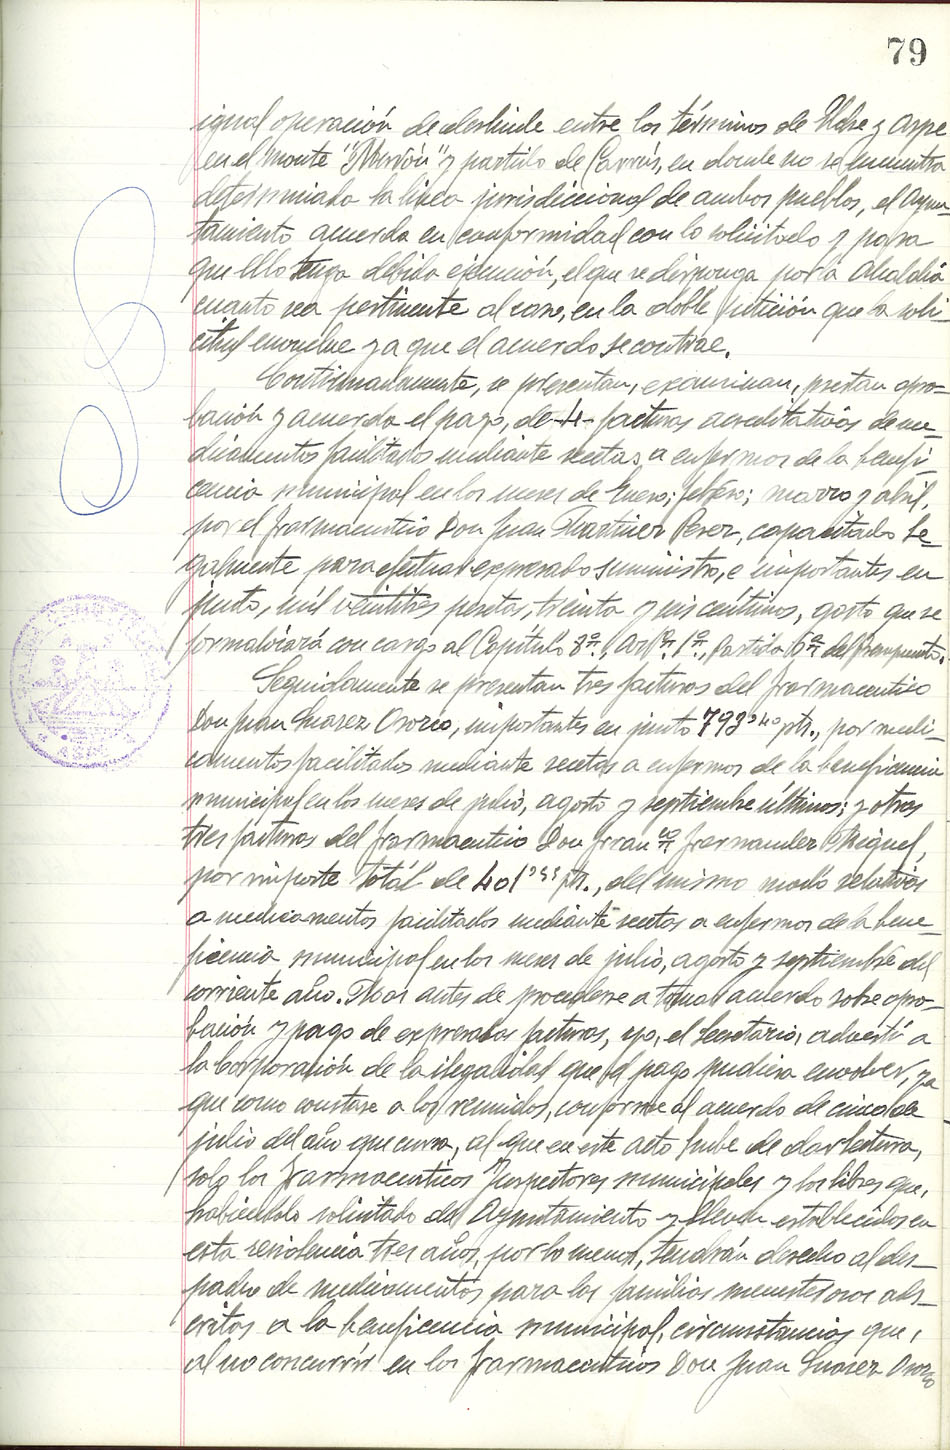 79
igual operación de deslinde entre los términos de Elche y Aspe
en el monte "y partido de Carrús, en donde no se encuentra
determinada la línea jurisdiccional de ambos pueblos, el Ayun
tamiento acuerda en conformidad con lo solicitado y para
que ello tenga debida ejecución, el que se disponga por la Alcaldía
cuanto sea pertinente al caso, en la doble petición que la soli-
citud envuelve ya que el acuerdo se contrae.
Continuadamente, se presentan, examinan, prestan apro-
bación y acuerda el pago, de -4- facturas acreditativas de me-
dicamentos facilitados mediante recetas a enfermos de la benefi-
cencia municipal en los meses de Enero; febrero; marzo y abril,
por el farmaceutico Don Juan Martinez Perez, capacitado le-
galmente para efectuar expresado suministro, e importantes en
junto, mil veintitres pesetas, treinta y seis céntimos, gasto que se
formalizará con cargo al Capítulo 8º, Artº 1º, partida 6ª del Presupuesto.
Seguidamente se presentan tres facturas del farmaceutico
Don Juan Suarez Orozco, importantes en junto 793'40 pts., por medi-
camentos facilitados mediante recetas a enfermos de la beneficencia
municipal en los meses de julio, agosto y septiembre últimos; y otras
tres facturas del farmaceutico Don Franco Fernandez Miguel,
por importe total de pts., del mismo modo relativas
a medicamentos facilitados mediante recetas a enfermos de la bene-
ficencia municipal en los meses de julio, agosto y septiembre del
corriente año. Mas antes de procederse a tomar acuerdo sobre apro-
bación y pago de expresadas facturas, yo, el Secretario, advertí a
la Corporación de la ilegalidad que el pago pudiera envolver, ya
que como constase a los reunidos, conforme al acuerdo de cinco de
julio del año que cursa, al que en este acto hube de dar lectura,
solo los farmaceuticos Inspectores municipales y los libres que,
habiendolo solicitado del Ayuntamiento y lleven establecidos en
esta residencia tres años, por lo menos, tendrán derecho al des-
pacho de medicamentos para las familias menesterosas ads-
critas a la beneficencia municipal, circunstancias que,
al no concurrir en los farmaceuticos Don Juan Suarez Orozco